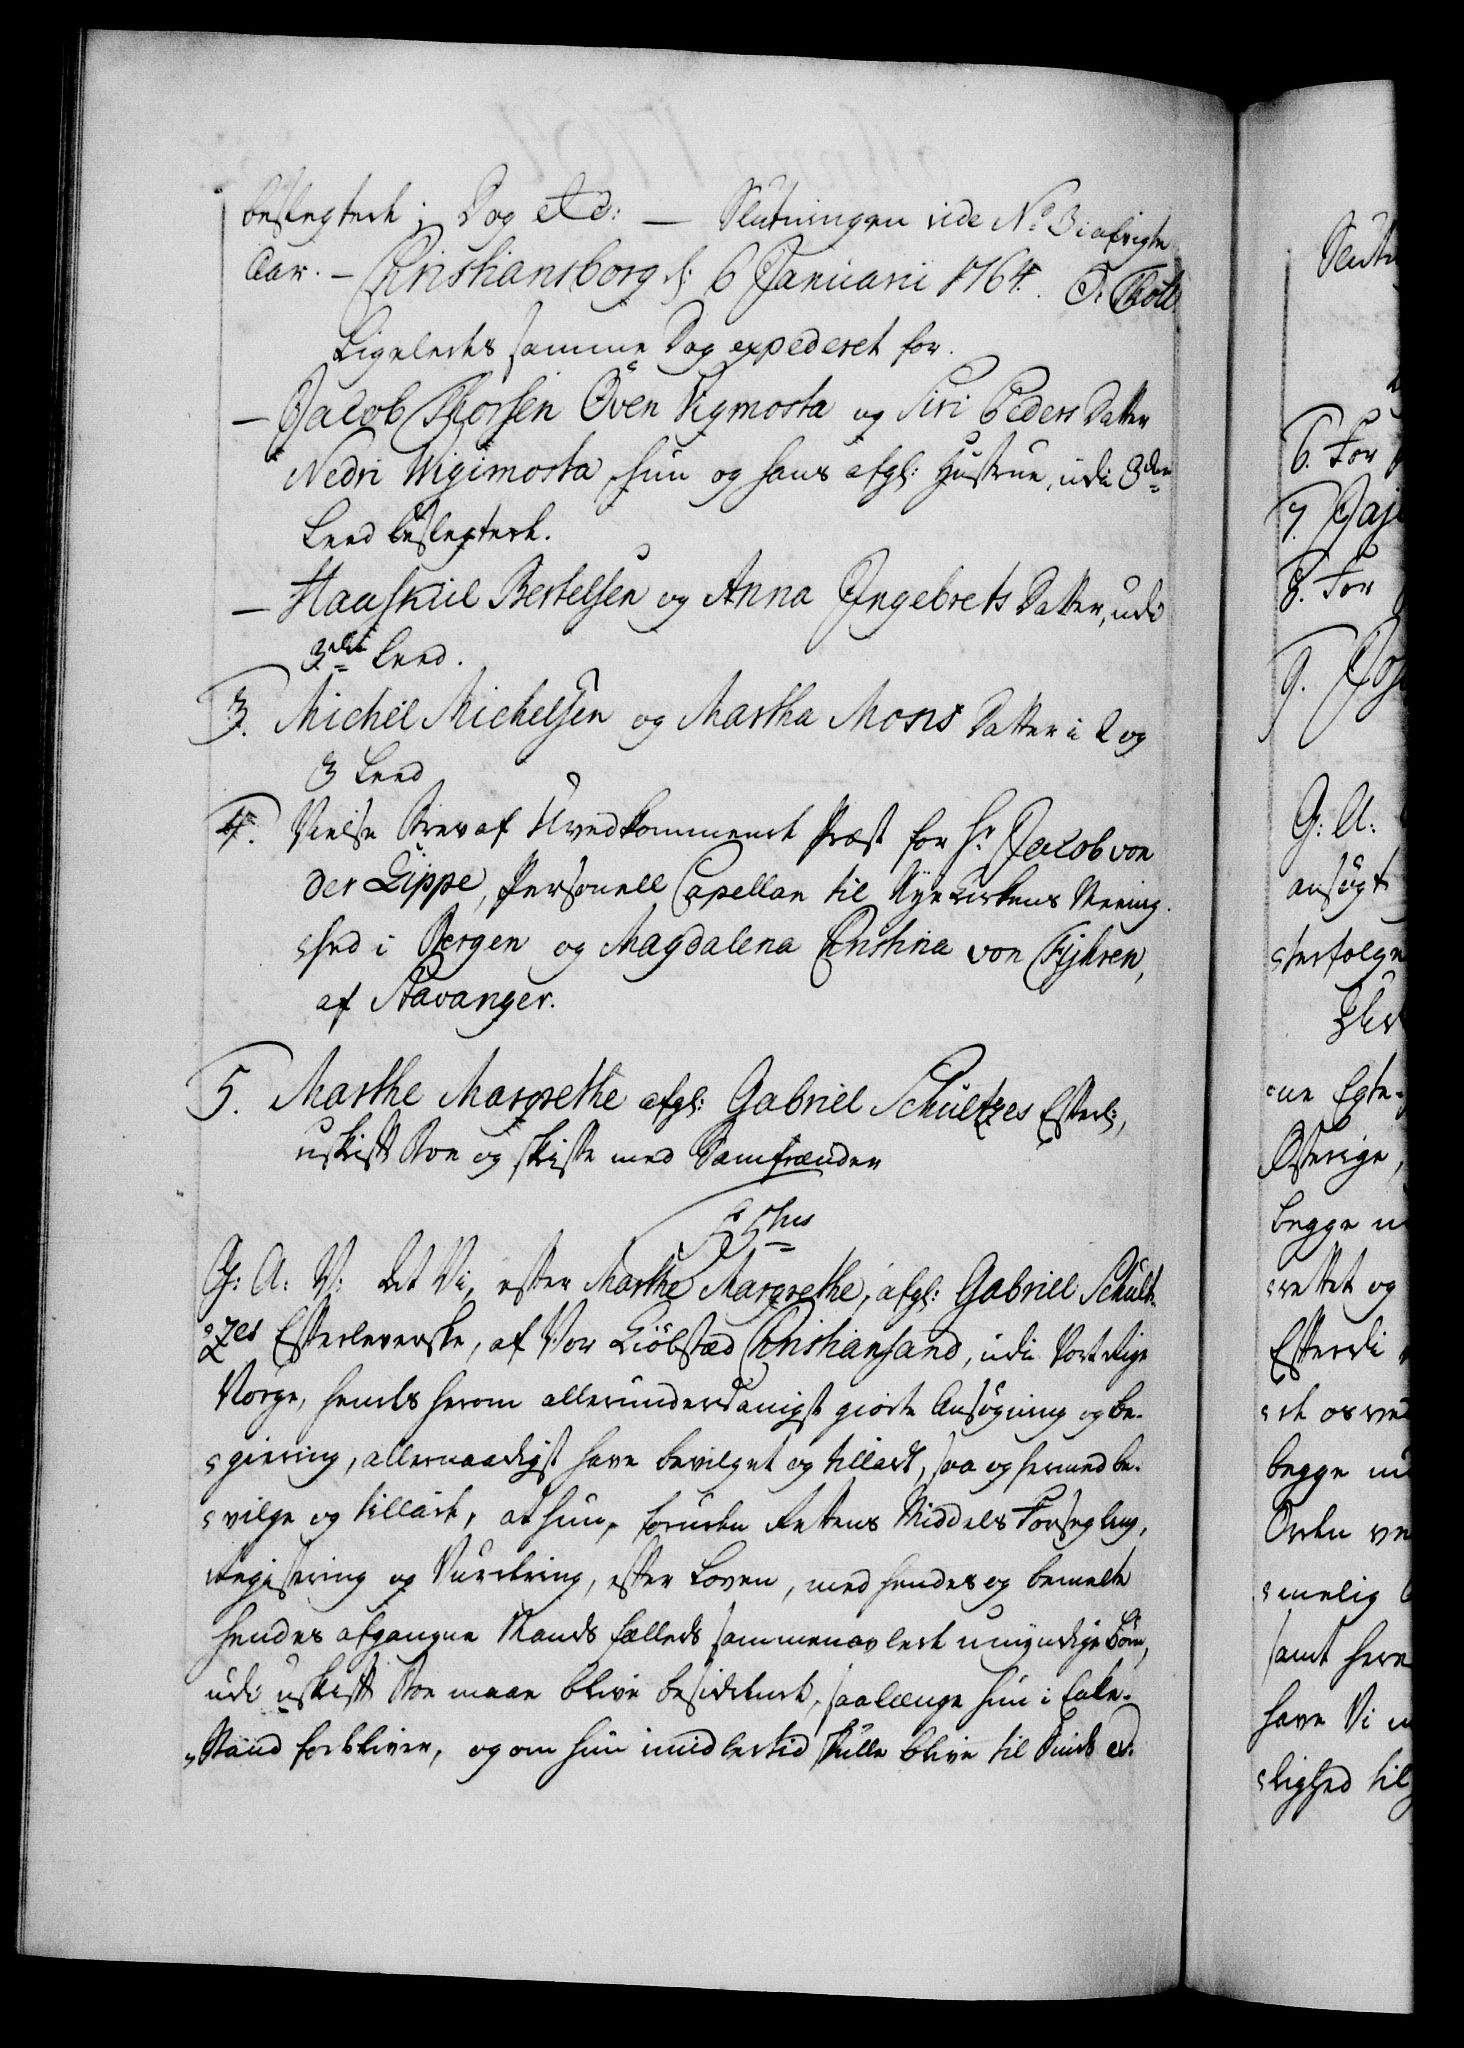 beslegtede; Dog etc: — Slutningen vide No 3 i afvigte
Aar. — Christiansborg d: 6 Januarii 1764. O. Thott
Ligeledes samme Dag expederet for.
— Jacob Thorsen Öven Vigmosta og Siri Peders Datter
Nedri Wigimosta, hun og hans afgl: Hustrue, udi 3die
Leed beslegtede.
— Haaskiil Bertelsen og Anna Ingebrets Datter, udi
3die Leed.
3. Michel Michelsen og Martha Mons Datter i 2 og
3 Leed
4. Vielse Brev af Uvedkommende Præst for Hr. Jacob von
der Lippe, Personell Capellan til Nye Kirkens Meenig-
hed i Bergen og Magdalena Christina von Fyhren,
af Stavanger.
5. Marthe Margrethe afgl: Gabriel Schultzes Efterl:,
uskift Boe og skifte med Samfrænder
G: A: V: Det Vi, efter Marthe Margrethe, afgl: Gabriel Schult-
zes Efterleverske, af Vor Kiöbsted Christiansand, udi Vort Rige
Norge, hendes herom allerunderdanigst giorte Ansögning og be-
giering, allernaadigst have bevilget og tilladt, saa og hermed be-
vilge og tillade, at hun, foruden Rettens Middels Forsegling,
Registering og Vurdering, efter Loven, med hendes og bemelte
hendes afgangne Mands fælleds sammenavlede umyndige Börn,
udi uskift Boe maae blive besiddende, saalænge hun i Enke-
Stand forbliver, og om hun imidlertid skulle blive til Sinds at
Slut
6. For
7.
8. For
9.
G: A:
ansögt
terfolge
ne Egte-
begge u
rettet og
Efterdi
begge
Orden
melig
samt here
have Vi
lighed til